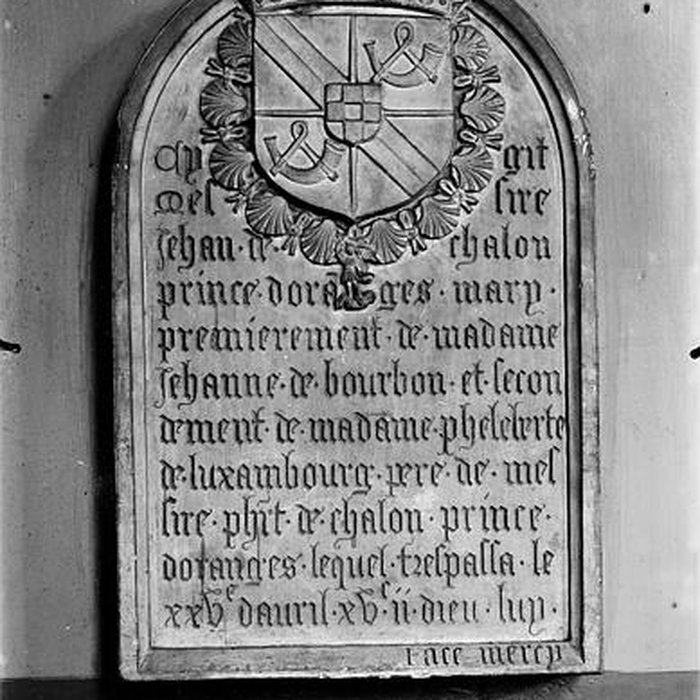 Cy git
Mes sire
Jehan · de · chalon
prince · dorāges · mary ·
premierement · de · madame
Jehanne · de · bourbon · et · secon
dement · de · madame · pheleberte
de · luxambourg · pere · de · mes
sire · phrt · de · chalon · prince ·
doranges · lequel · trespassa · le
xxvᵉ dauril · xvᶜ ii · dieu · luy ·
face mercy